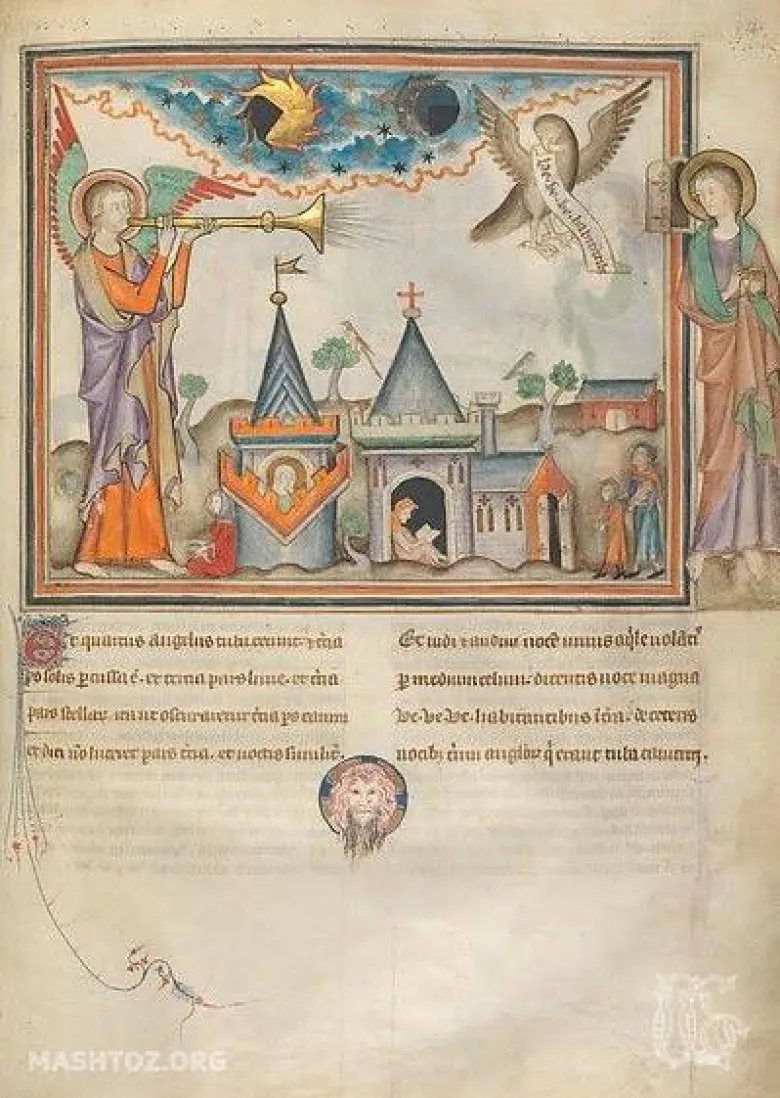 Ve·ve·ve·habitantib
Et quartus angelus tuba cecinit· ⁊ t̄cia
ps solis p̄cussa ē· et tercia pars lune· et t̄cia
pars stellaꝝ· ita ut obscuraretur t̄cia ps eorum
et diei n̄o luceret pars t̄cia· et noctis similit̄.
Et uidi ⁊ audiui uocē unius aq̄le uolātis
p medium celum· dicentis uoce magna
Ve·ve·ve·habitantibus ī t̄ra· de ceteris
uocib; t̄um angloꝝ q̄ erant tuba canituri.
MASHTOZ.ORG